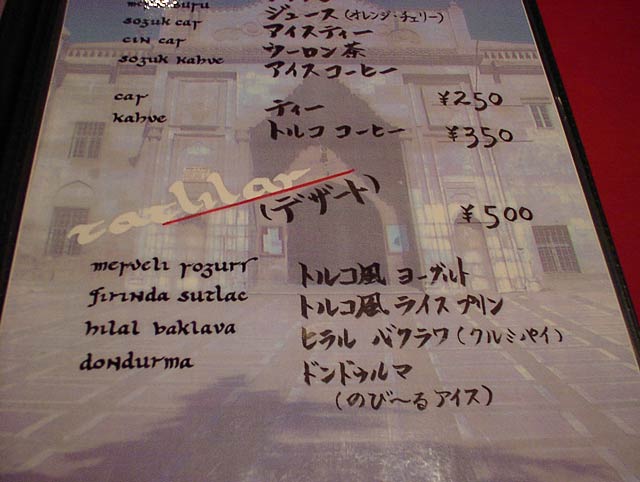 ジュース（オレンジ・チェリー）
soguk cay アイスティー
cin cay ウーロン茶
soguk kahve アイスコーヒー
cay ティー ¥250
kahve トルココーヒー ¥350
tatlilar
（デザート） ¥500
meyveli yogurt トルコ風 ヨーグルト
firinda sutlac トルコ風 ライス プリン
hilal baklava ヒラル バクラワ（クルミパイ）
dondurma ドンドゥルマ
（のび〜るアイス）